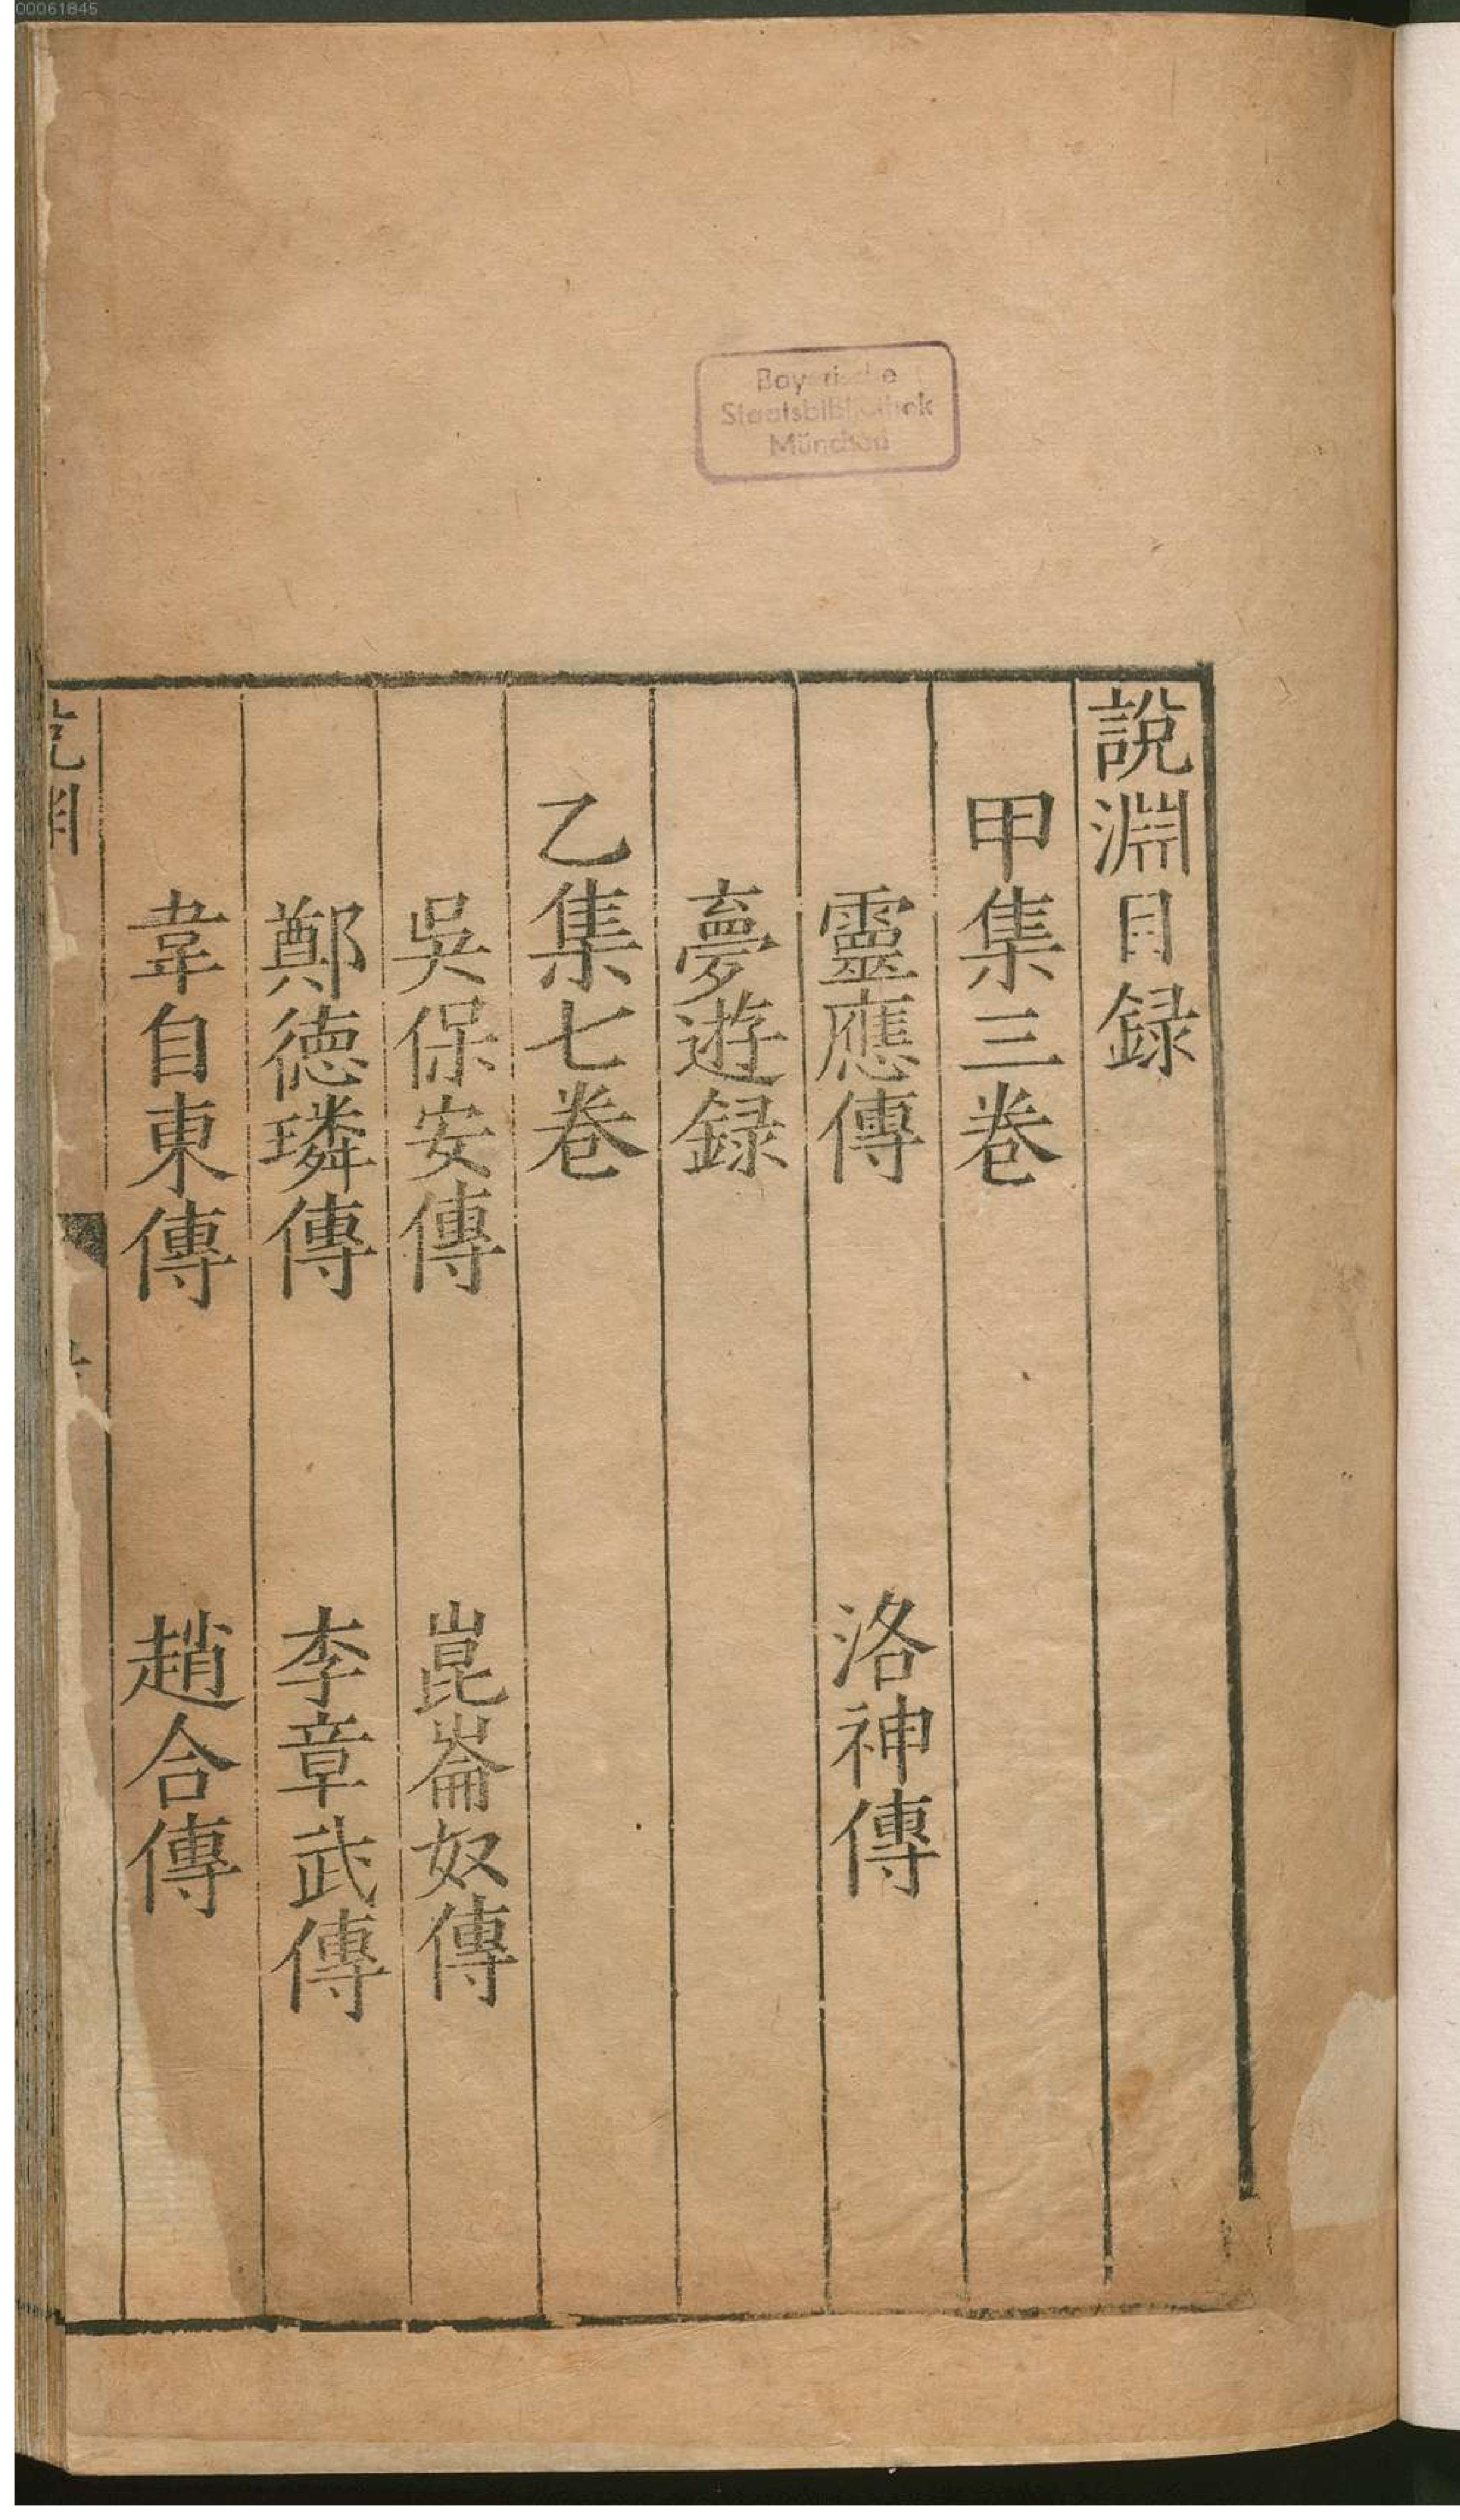 00061845
Bayerische
Staatsbibliothek
München
說淵目録
甲集三卷
靈應傳 洛神傳
夣遊録
乙集七卷
吳保安傳 崑崙奴傳
鄭德璘傳 李章武傳
韋自東傳 趙合傳